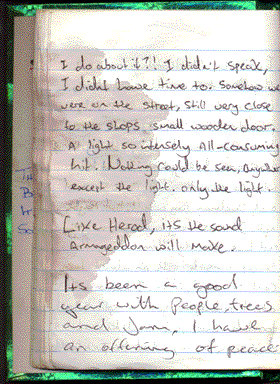 I do about it?! I didn't speak,
I didnt have time to. Somehow we
were on the street, still very close
to the shops small wooden door.
A light so intensely All-consuming
hit. Nothing could be seen, anywhere
except the light. only the light.
Like Herod, its the sound
Armageddon will make.
Its been a good
year with people, trees
and Jam, I have
an offering of peace